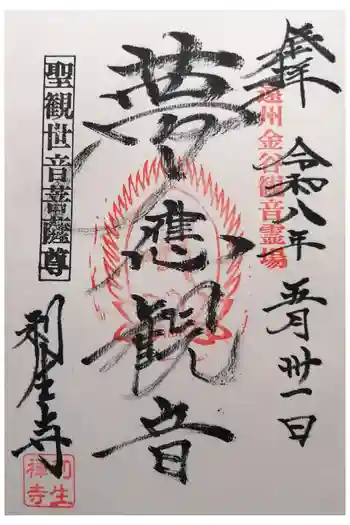 奉拝
令和八年
五月卅一日
遠州金谷観音霊場
夢應観音
聖観世音菩薩尊
利生寺
利生
禅寺